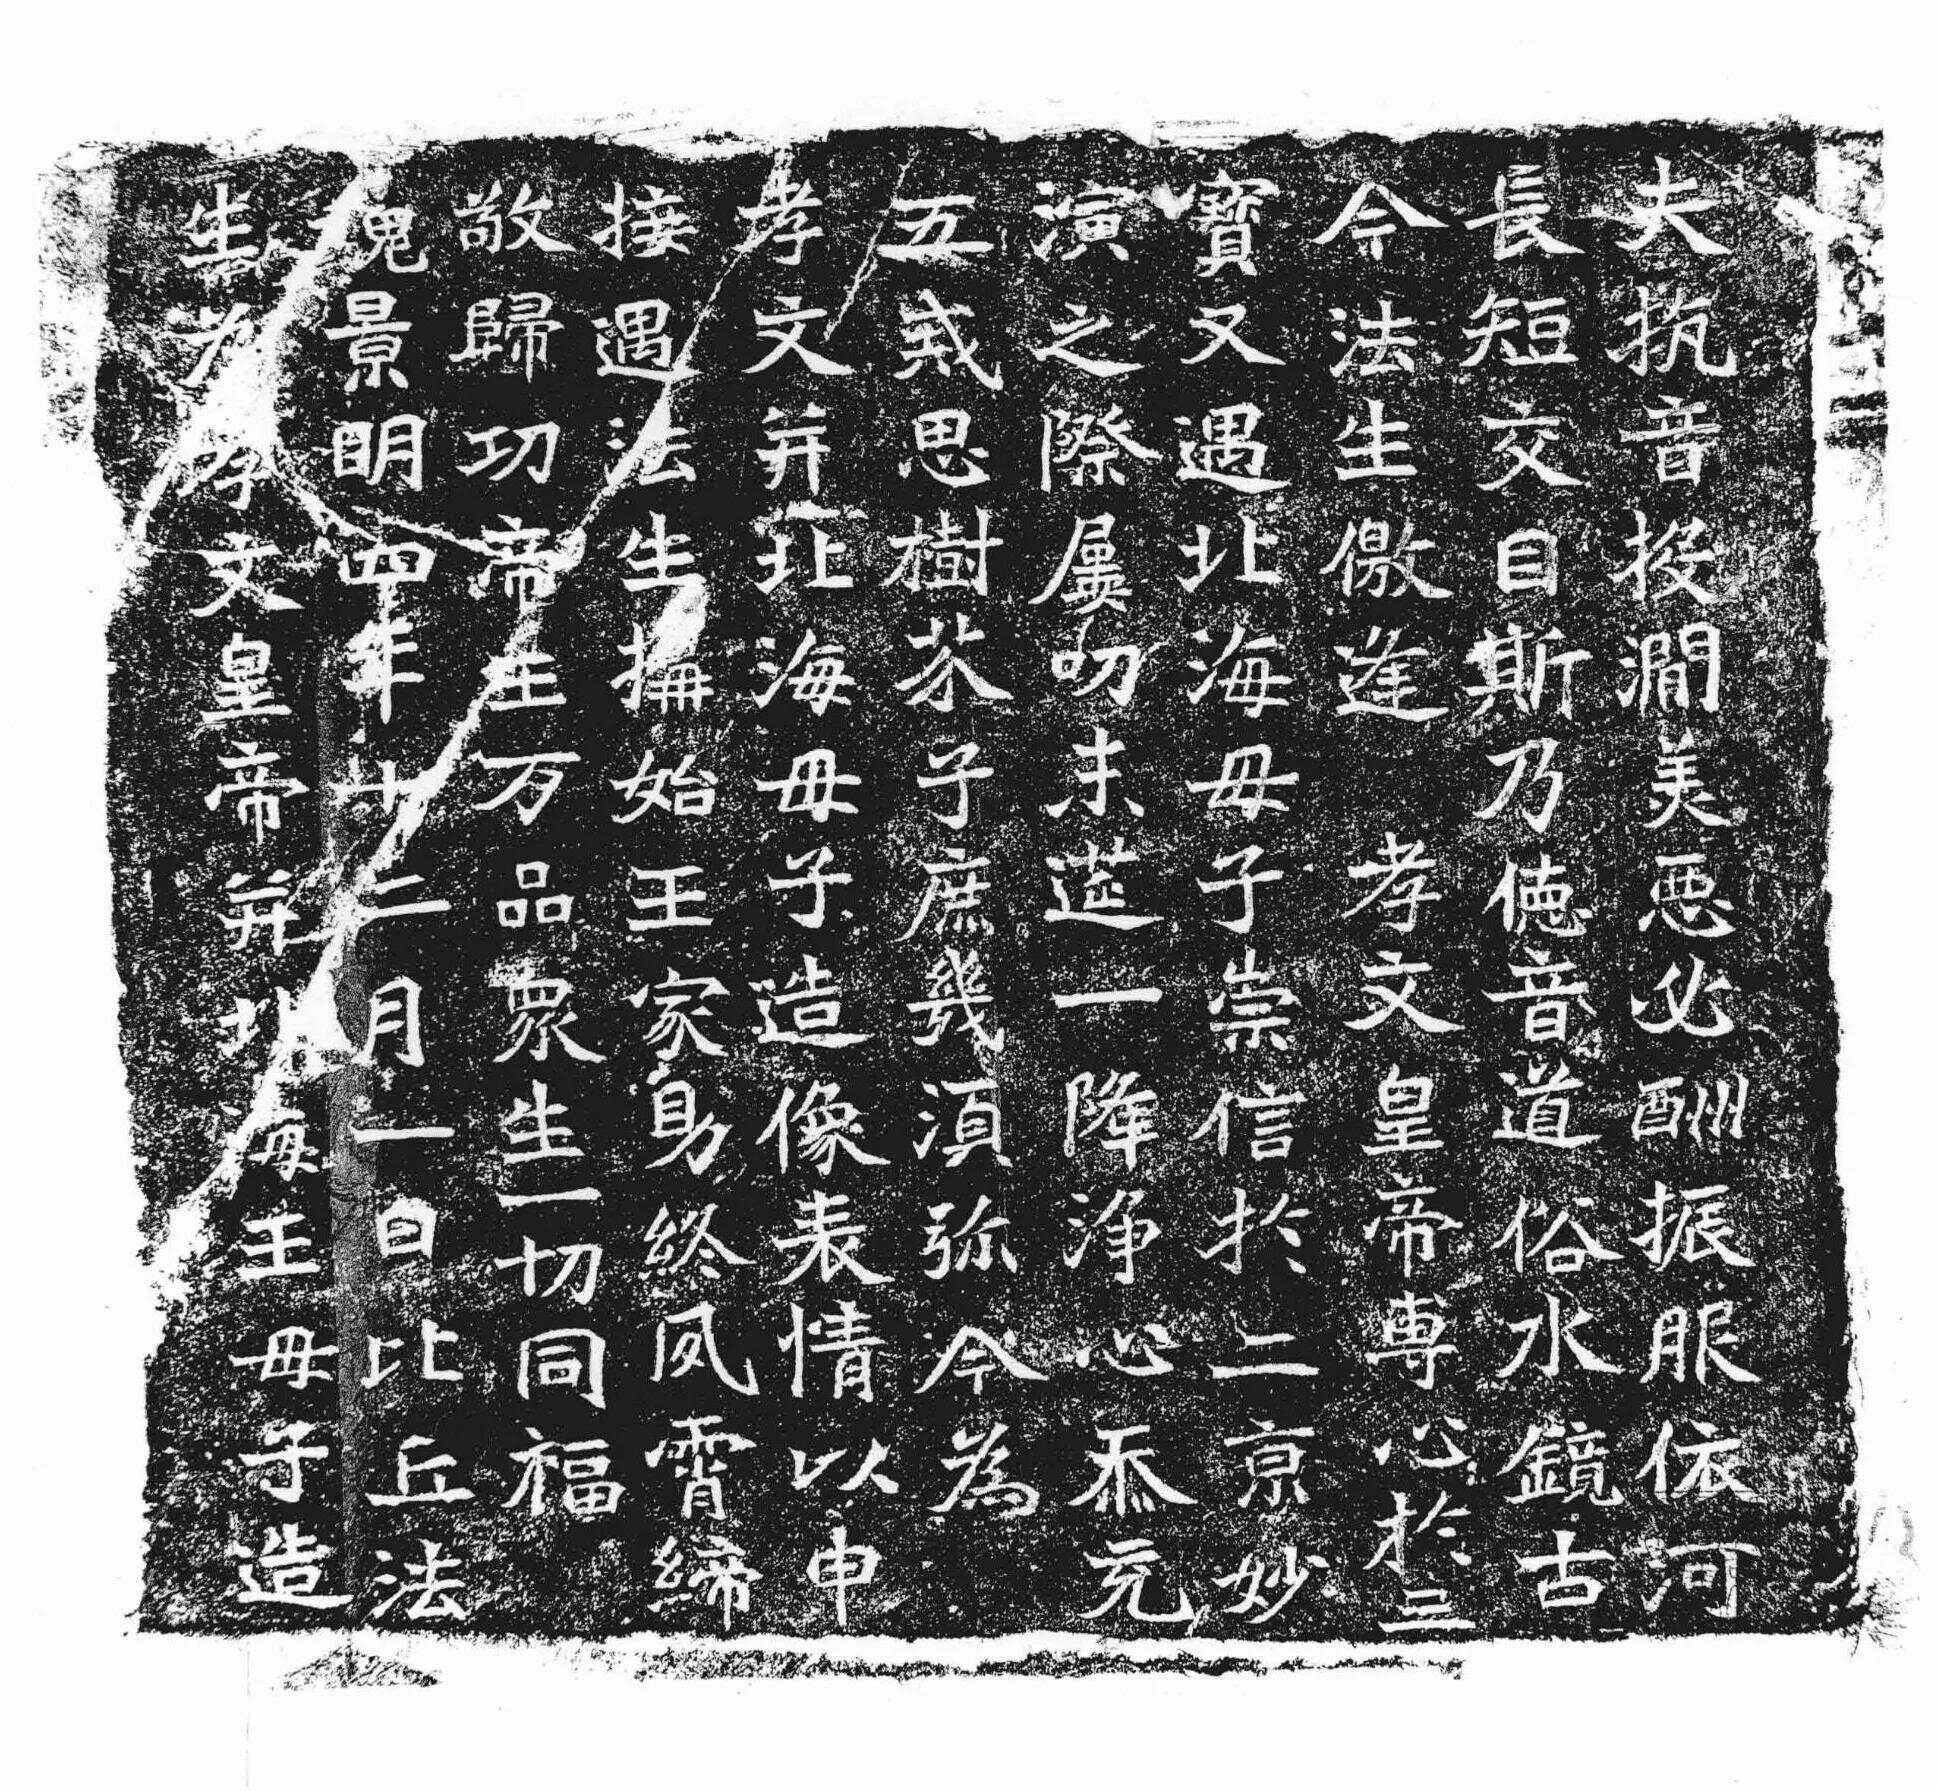 夫抗音投澗美惡必酬振服依河
長短交目斯乃德音道俗水鏡古
今法生儌逢 孝文皇帝專心於三
寶又遇北海母子崇信於二京妙
演之際屢叨末莚一降淨心忝充
五戒思樹芥子庶幾須弥今為
孝文并北海母子造像表情以申
接遇法生搆始王家助終夙霄締
敬歸功帝王万品眾生一切同福
魏景明四年十二月一日比丘法
生為孝文皇帝并北海王母子造